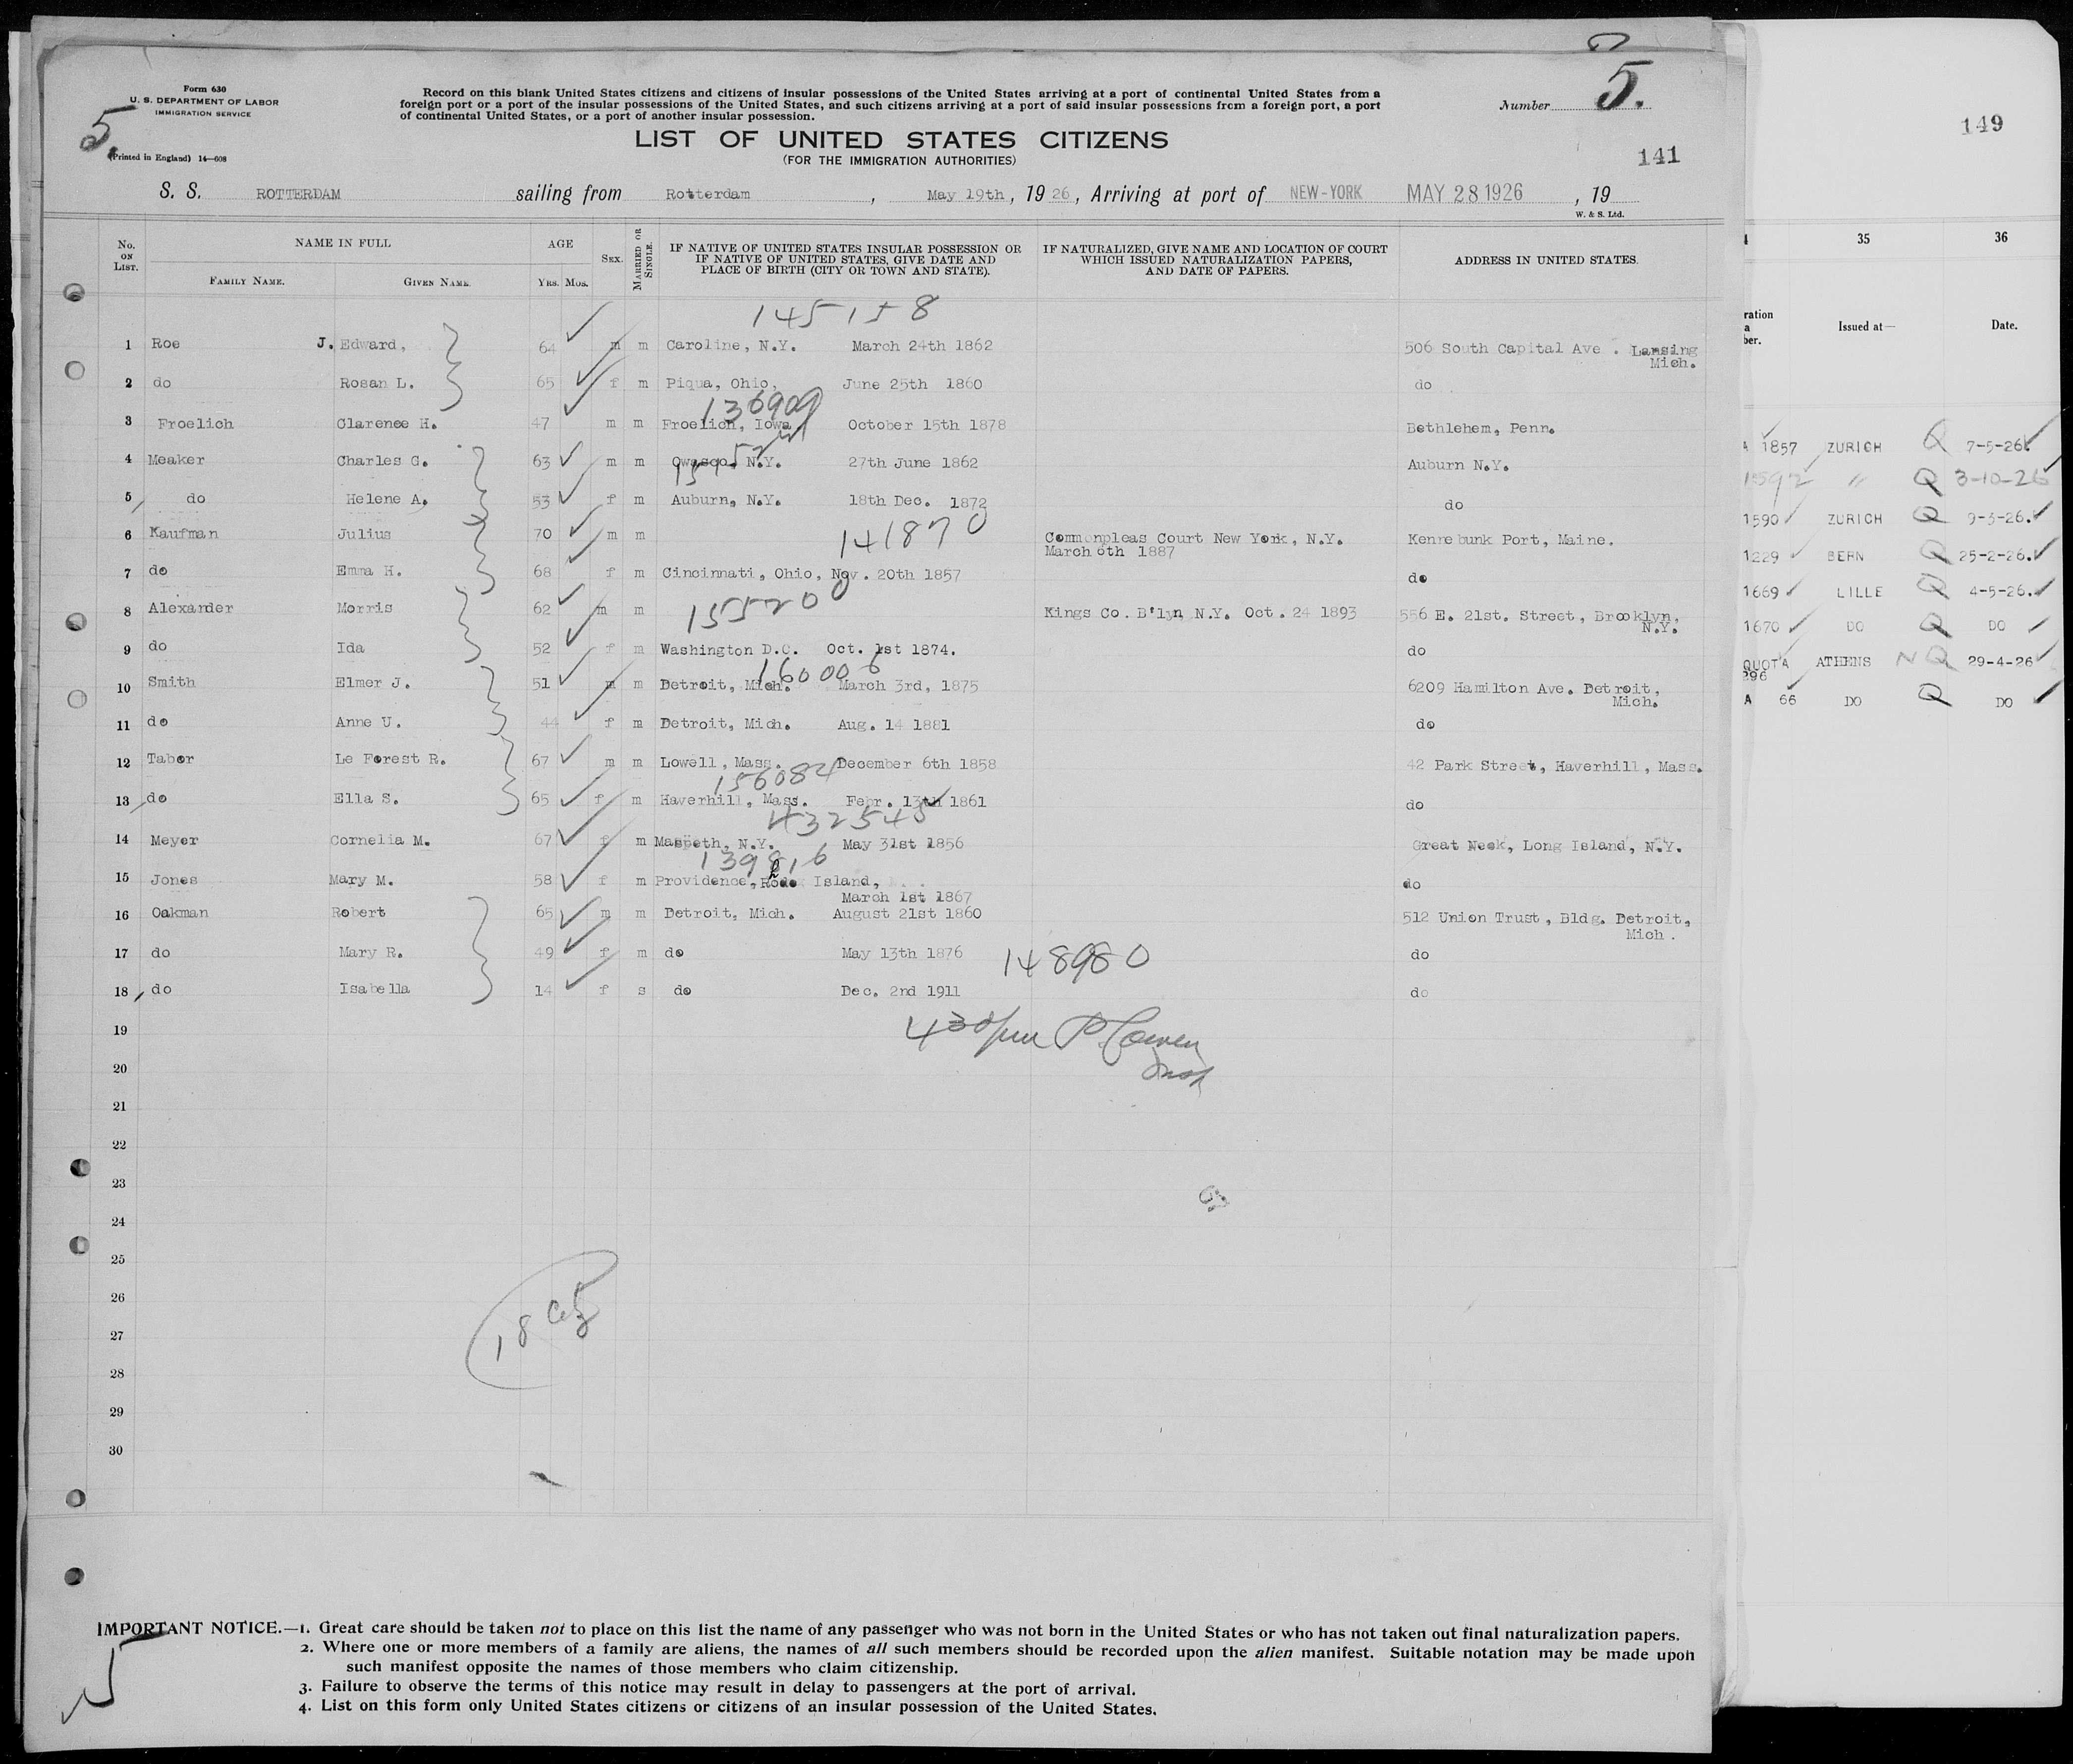 Form 630
U. S. DEPARTMENT OF LABOR
IMMIGRATION SERVICE
5
(Printed in England) 14—608
Record on this blank United States citizens and citizens of insular possessions of the United States arriving at a port of continental United States from a
foreign port or a port of the insular possessions of the United States, and such citizens arriving at a port of said insular possessions from a foreign port, a port
of continental United States, or a port of another insular possession.
Number 5.
LIST OF UNITED STATES CITIZENS
(FOR THE IMMIGRATION AUTHORITIES)
141
149
S. S. ROTTERDAM sailing from Rotterdam, May 19th, 1926, Arriving at port of NEW-YORK MAY 28 1926, 19
W. & S. Ltd.
No. ON LIST. NAME IN FULL FAMILY NAME. GIVEN NAME. AGE YRS. MOS. SEX. MARRIED OR SINGLE. IF NATIVE OF UNITED STATES INSULAR POSSESSION OR IF NATIVE OF UNITED STATES, GIVE DATE AND PLACE OF BIRTH (CITY OR TOWN AND STATE). IF NATURALIZED, GIVE NAME AND LOCATION OF COURT WHICH ISSUED NATURALIZATION PAPERS, AND DATE OF PAPERS. ADDRESS IN UNITED STATES.
145158
1 Roe J. Edward, 64 m m Caroline, N.Y. March 24th 1862 506 South Capital Ave. Lansing Mich.
2 do Rosan L. 65 f m Piqua, Ohio, June 25th 1860 do
136909
3 Froelich Clarence H. 47 m m Froelich, Iowa October 15th 1878 Bethlehem, Penn.
4 Meaker Charles G. 63 m m Owasco, N.Y. 27th June 1862 Auburn N.Y.
5 do Helene A. 53 f m Auburn, N.Y. 18th Dec. 1872 do
141870
6 Kaufman Julius 70 m m Commonpleas Court New York, N.Y. March 6th 1887 Kennebunk Port, Maine.
7 do Emma H. 68 f m Cincinnati, Ohio, Nov. 20th 1857 do
155200
8 Alexander Morris 62 m m Kings Co. B'lyn N.Y. Oct. 24 1893 556 E. 21st. Street, Brooklyn, N.Y.
9 do Ida 52 f m Washington D.C. Oct. 1st 1874. do
160006
10 Smith Elmer J. 51 m m Detroit, Mich. March 3rd, 1875 6209 Hamilton Ave. Detroit, Mich.
11 do Anne U. 44 f m Detroit, Mich. Aug. 14 1881 do
12 Tabor Le Forest R. 67 m m Lowell, Mass. December 6th 1858 42 Park Street, Haverhill, Mass.
156084
13 do Ella S. 65 f m Haverhill, Mass. Febr. 13th 1861 do
432545
14 Meyer Cornelia M. 67 f m Maspeth, N.Y. May 31st 1856 Great Neck, Long Island, N.Y.
139816
15 Jones Mary M. 58 f m Providence, Rhode Island, March 1st 1867 do
16 Oakman Robert 65 m m Detroit, Mich. August 21st 1860 512 Union Trust, Bldg. Detroit, Mich.
17 do Mary R. 49 f m do May 13th 1876 148980 do
18 do Isabella 14 f s do Dec. 2nd 1911 do
19
20
21
22
23
24
25
26
27
28
29
30
18
IMPORTANT NOTICE.—1. Great care should be taken not to place on this list the name of any passenger who was not born in the United States or who has not taken out final naturalization papers.
2. Where one or more members of a family are aliens, the names of all such members should be recorded upon the alien manifest. Suitable notation may be made upon
such manifest opposite the names of those members who claim citizenship.
3. Failure to observe the terms of this notice may result in delay to passengers at the port of arrival.
4. List on this form only United States citizens or citizens of an insular possession of the United States.
5
35 36
Issued at— Date.
1857 ZURICH Q 7-5-26
1592 " Q 3-10-26
1590 ZURICH Q 9-3-26.
1229 BERN Q 25-2-26.
1669 LILLE Q 4-5-26.
1670 DO Q DO
QUOTA 296 ATHENS NQ 29-4-26
A 66 DO Q DO